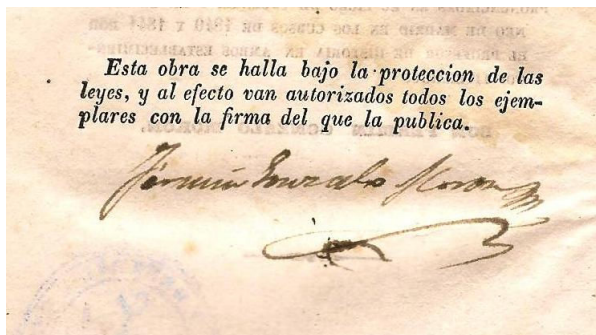 Esta obra se halla bajo la proteccion de las
leyes, y al efecto van autorizados todos los ejem-
plares con la firma del que la publica.
Fermin Gonzalo Moron